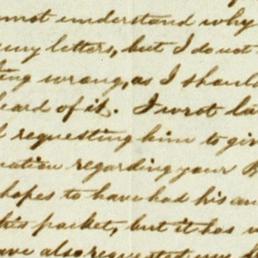 not understand why
my letters, but I do not
ting wrong, as I should
heard of it. I wrot la
l requesting him to giv
mation regarding your B
hopes to have had his an
his packet, but it has n
ave also requested my